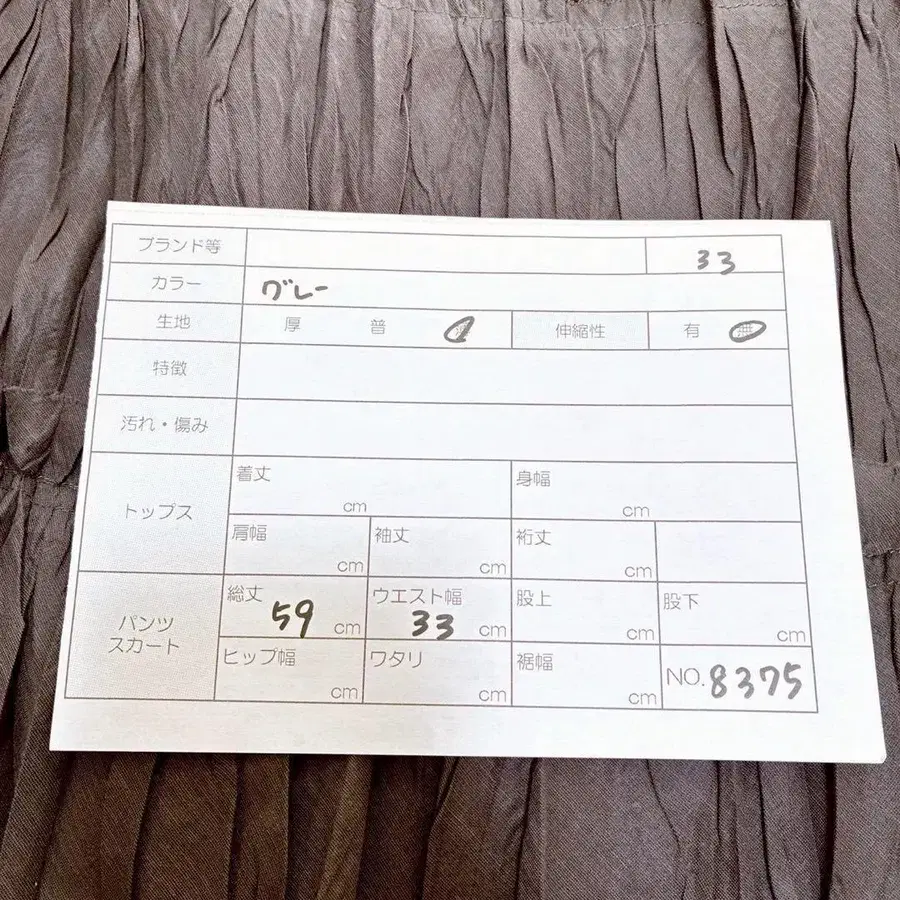 ブランド等 33
カラー グレー
生地 厚 普 伸縮性 有 無
特徴
汚れ・傷み
トップス
着丈 cm 身幅 cm
肩幅 cm 袖丈 cm 裄丈 cm
パンツ
スカート
総丈 59 cm ウエスト幅 33 cm 股上 cm 股下 cm
ヒップ幅 cm ワタリ cm 裾幅 cm NO.8375